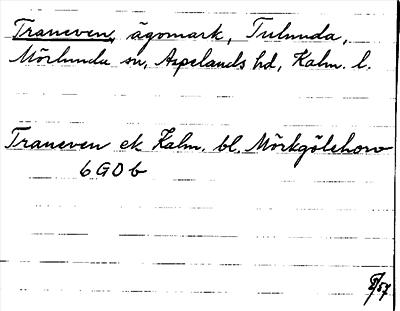 Traneven, ägomark, Tulunda,
Mörlunda sn, Aspelands hd, Kalm. l.
Traneven ek Kalm. bl. Mörkgölehorv
6G0b
8/57